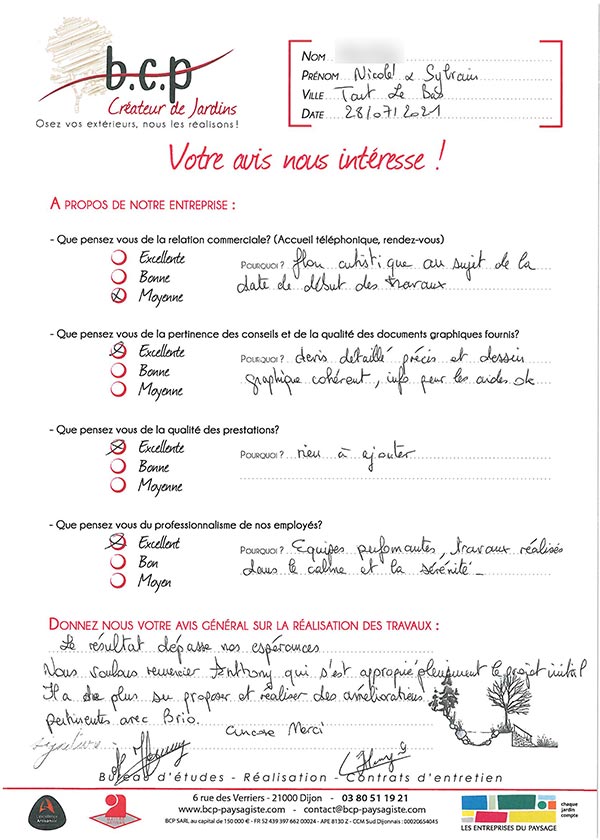 b.c.p
Créateur de Jardins
Osez vos extérieurs, nous les réalisons !
NOM
PRÉNOM Nicole & Sylvain
VILLE Tart Le Bas
DATE 28/07/2021
Votre avis nous intéresse !
A PROPOS DE NOTRE ENTREPRISE :
- Que pensez vous de la relation commerciale? (Accueil téléphonique, rendez-vous)
Excellente
Bonne
Moyenne
POURQUOI ? flou artistique au sujet de la
date de début des travaux
- Que pensez vous de la pertinence des conseils et de la qualité des documents graphiques fournis?
Excellente
Bonne
Moyenne
POURQUOI ? devis detaillé précis et dessin
graphique cohérent, info pour les aides ok
- Que pensez vous de la qualité des prestations?
Excellente
Bonne
Moyenne
POURQUOI ? rien à ajouter
- Que pensez vous du professionnalisme de nos employés?
Excellent
Bon
Moyen
POURQUOI ? Equipes performantes, travaux réalisés
dans le calme et la sérénité
DONNEZ NOUS VOTRE AVIS GÉNÉRAL SUR LA RÉALISATION DES TRAVAUX :
Le résultat dépasse nos espérances
Nous voulons remercier Anthony qui s'est approprié pleinement le projet initial
Il a de plus su proposer et réaliser des améliorations
pertinentes avec Brio.
Encore Merci
Signatures
Bureau d'études - Réalisation - Contrats d'entretien
6 rue des Verriers - 21000 Dijon - 03 80 51 19 21
www.bcp-paysagiste.com - contact@bcp-paysagiste.com
BCP SARL au capital de 150 000 € - FR 52 439 397 662 00024 - APE 8130 Z - CCM Sud Dijonnais : 00020654045
LES ENTREPRISES DU PAYSAGE
chaque
jardin
compte